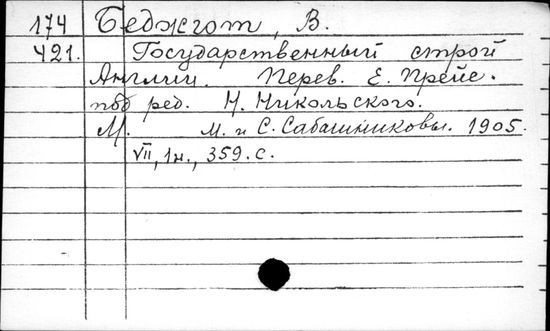 174 Беджгот, В.
421. Государственный строй
Англии. Перев. Е. Прейс.
под ред. Н. Никольского.
М. М. и С. Сабашниковы. 1905.
VII, 1н., 359. с.